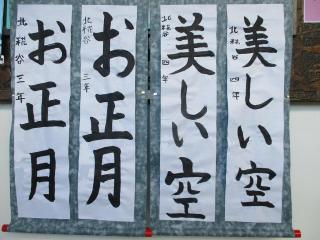 美しい空
北糀谷 四年
美しい空
北糀谷 四年
お正月
北糀谷 三年
お正月
北糀谷 三年